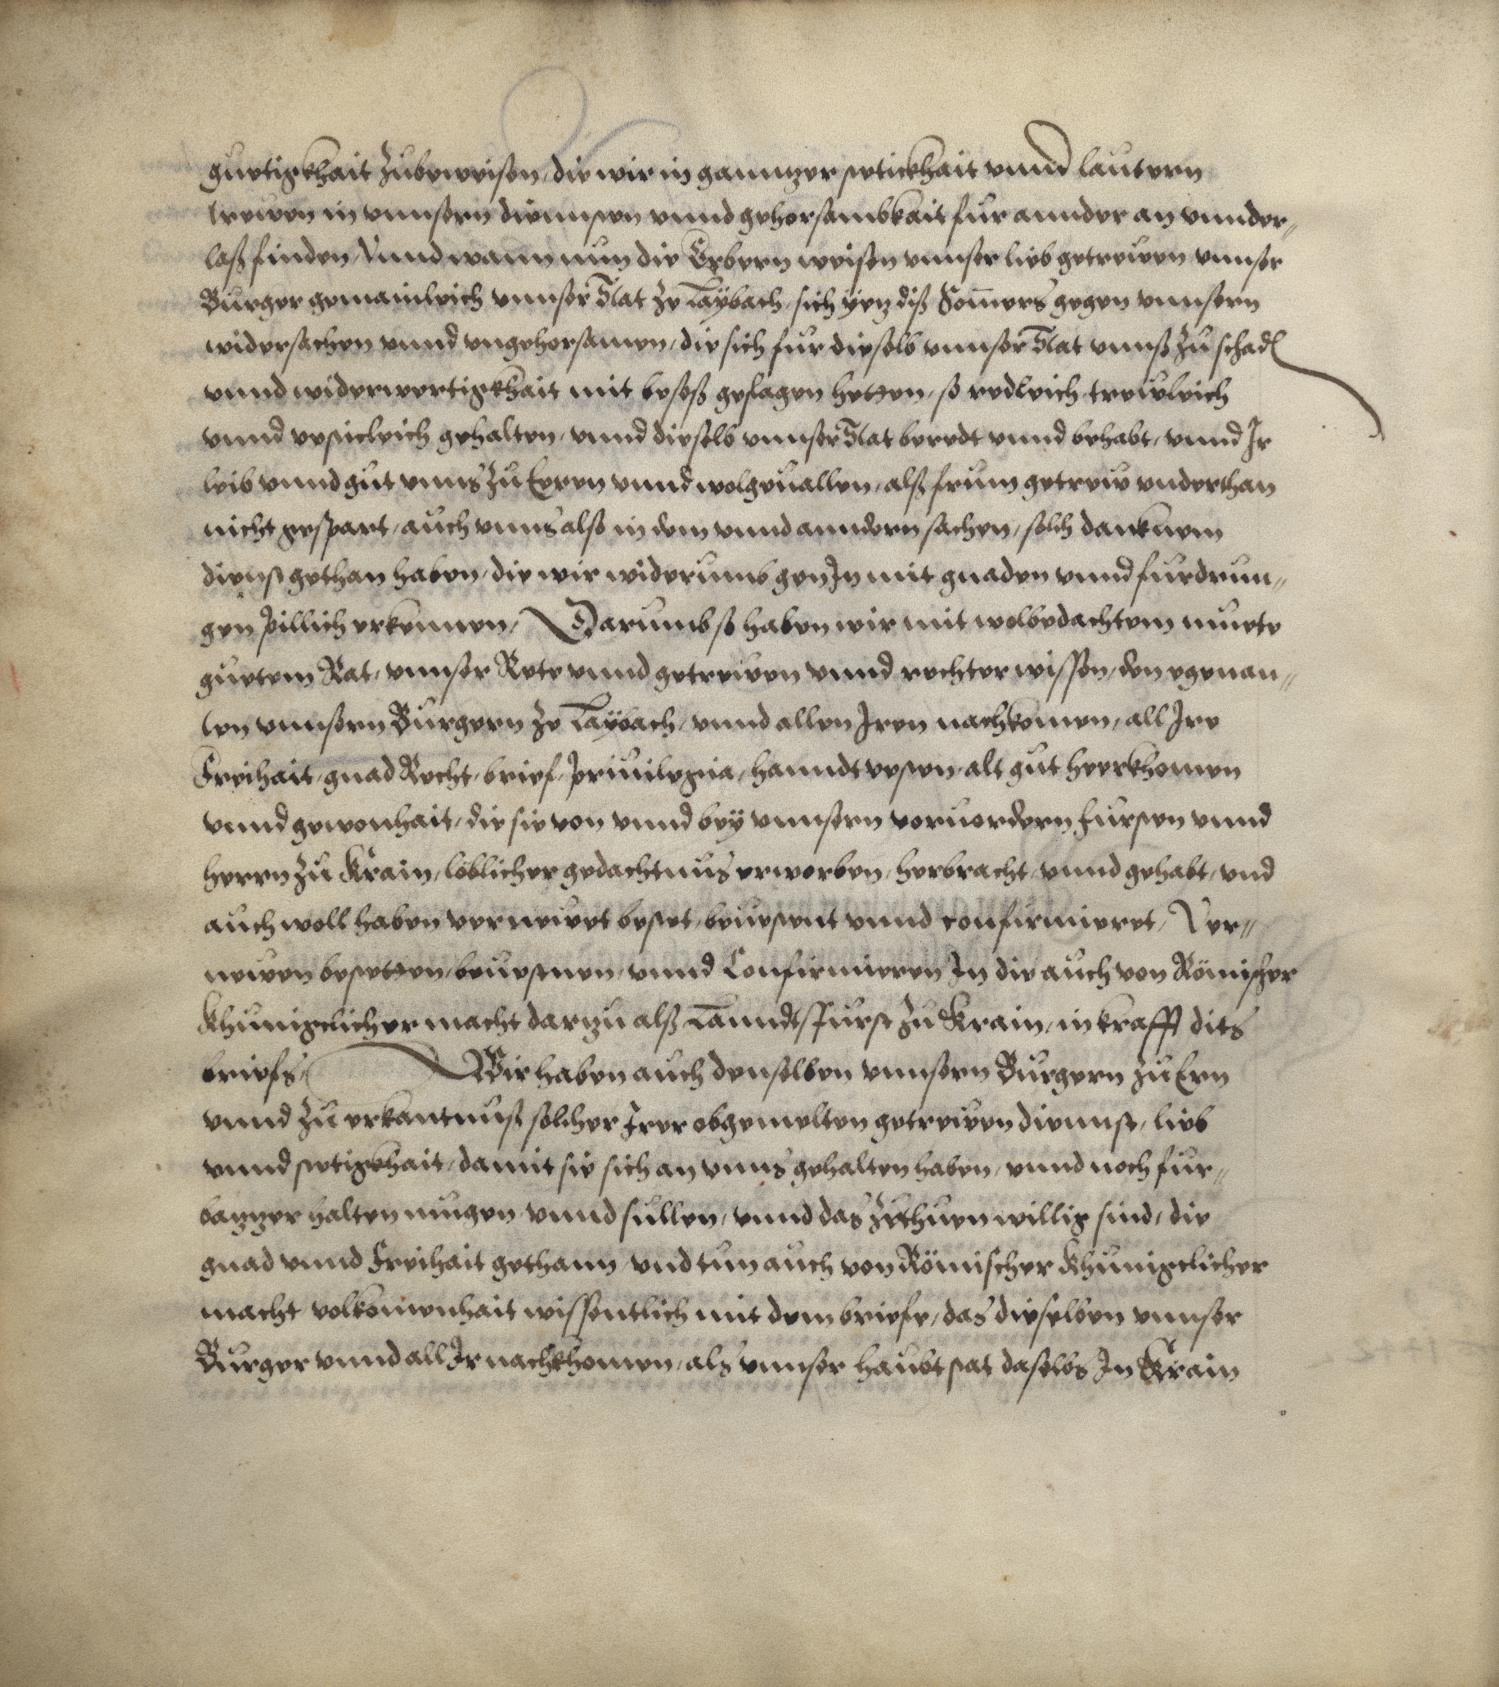 guetigkhait zubeweisen, die wir in ganntzer stetickhait vnnd lautern
trewen in vnnsern diennsten vnnd gehorsambkait fur annder an vnnder„
laß finden, Vnnd wann nun die Erbern weisen vnnser lieb getrewen vnnser
Burger gemainleich vnnser Stat ze Laÿbach, sich ÿetz diß Somers gegen vnnsern
widersachen vnnd vngehorsamen, die sich fur dieselb vnnser Stat vnnß zu schadn
vnnd widerwertigkhait mit beseß geslagen hetten, so redleich treuleich
vnnd vestieleich gehalten, vnnd dieselb vnnser Stat beredt vnnd behabt, vnnd Ir
leib vnnd gut vnns zu Eeren vnnd wolgeuallen, alß frum getrew vnderthan
nicht gespart, auch vnns also in dem vnnd anndern sachen, solch danknem
dienst gethan haben, die wir widerumb gen In mit gnaden vnnd furdrun„
gen pillich erkennen, Darumb so haben wir mit wolbedachtem muete
guetem Rat, vnnser Rete vnnd getrewen vnnd rechter wissen, den egenan„
ten vnnsern Burgern ze Laÿbach, vnnd allen Iren nachkomen, all Ire
Freihait, gnad Recht, brief, priuilegia, hanndtvesten, alt gut heerkhomen
vnnd gewonhait, die sie von vnnd beÿ vnnsern voruordern fursten vnnd
herrn zu Krain, loblicher gedachtnus erworben, herbracht, vnnd gehabt, vnd
auch woll haben vernewet bestet, beuestent vnnd confirmieret, Ver„
newen bestetten, beuestnen, vnnd Confirmieren In die auch von Römischer
Khuniglicher macht dartzu alß Lanndtsfurst zu Krain, in krafft dits
briefs, Wir haben auch denselben vnnsern Burgern zu Ern
vnnd zu erkantnuß solcher Irer obgemelten getrewen diennst, lieb
vnnd stetigkhait, damit sie sich an vnns gehalten haben, vnnd noch fur„
batzer halten mugen vnnd sullen, vnnd das zethuen willig sind, die
gnad vnnd Freihait gethann vnd tun auch von Römischer Khuniglicher
macht volkomenhait wissentlich mit dem briefe, das dieselben vnnser
Burger vnnd all Ir nachkhomen, als vnnser haubtstat daselbs In Krain